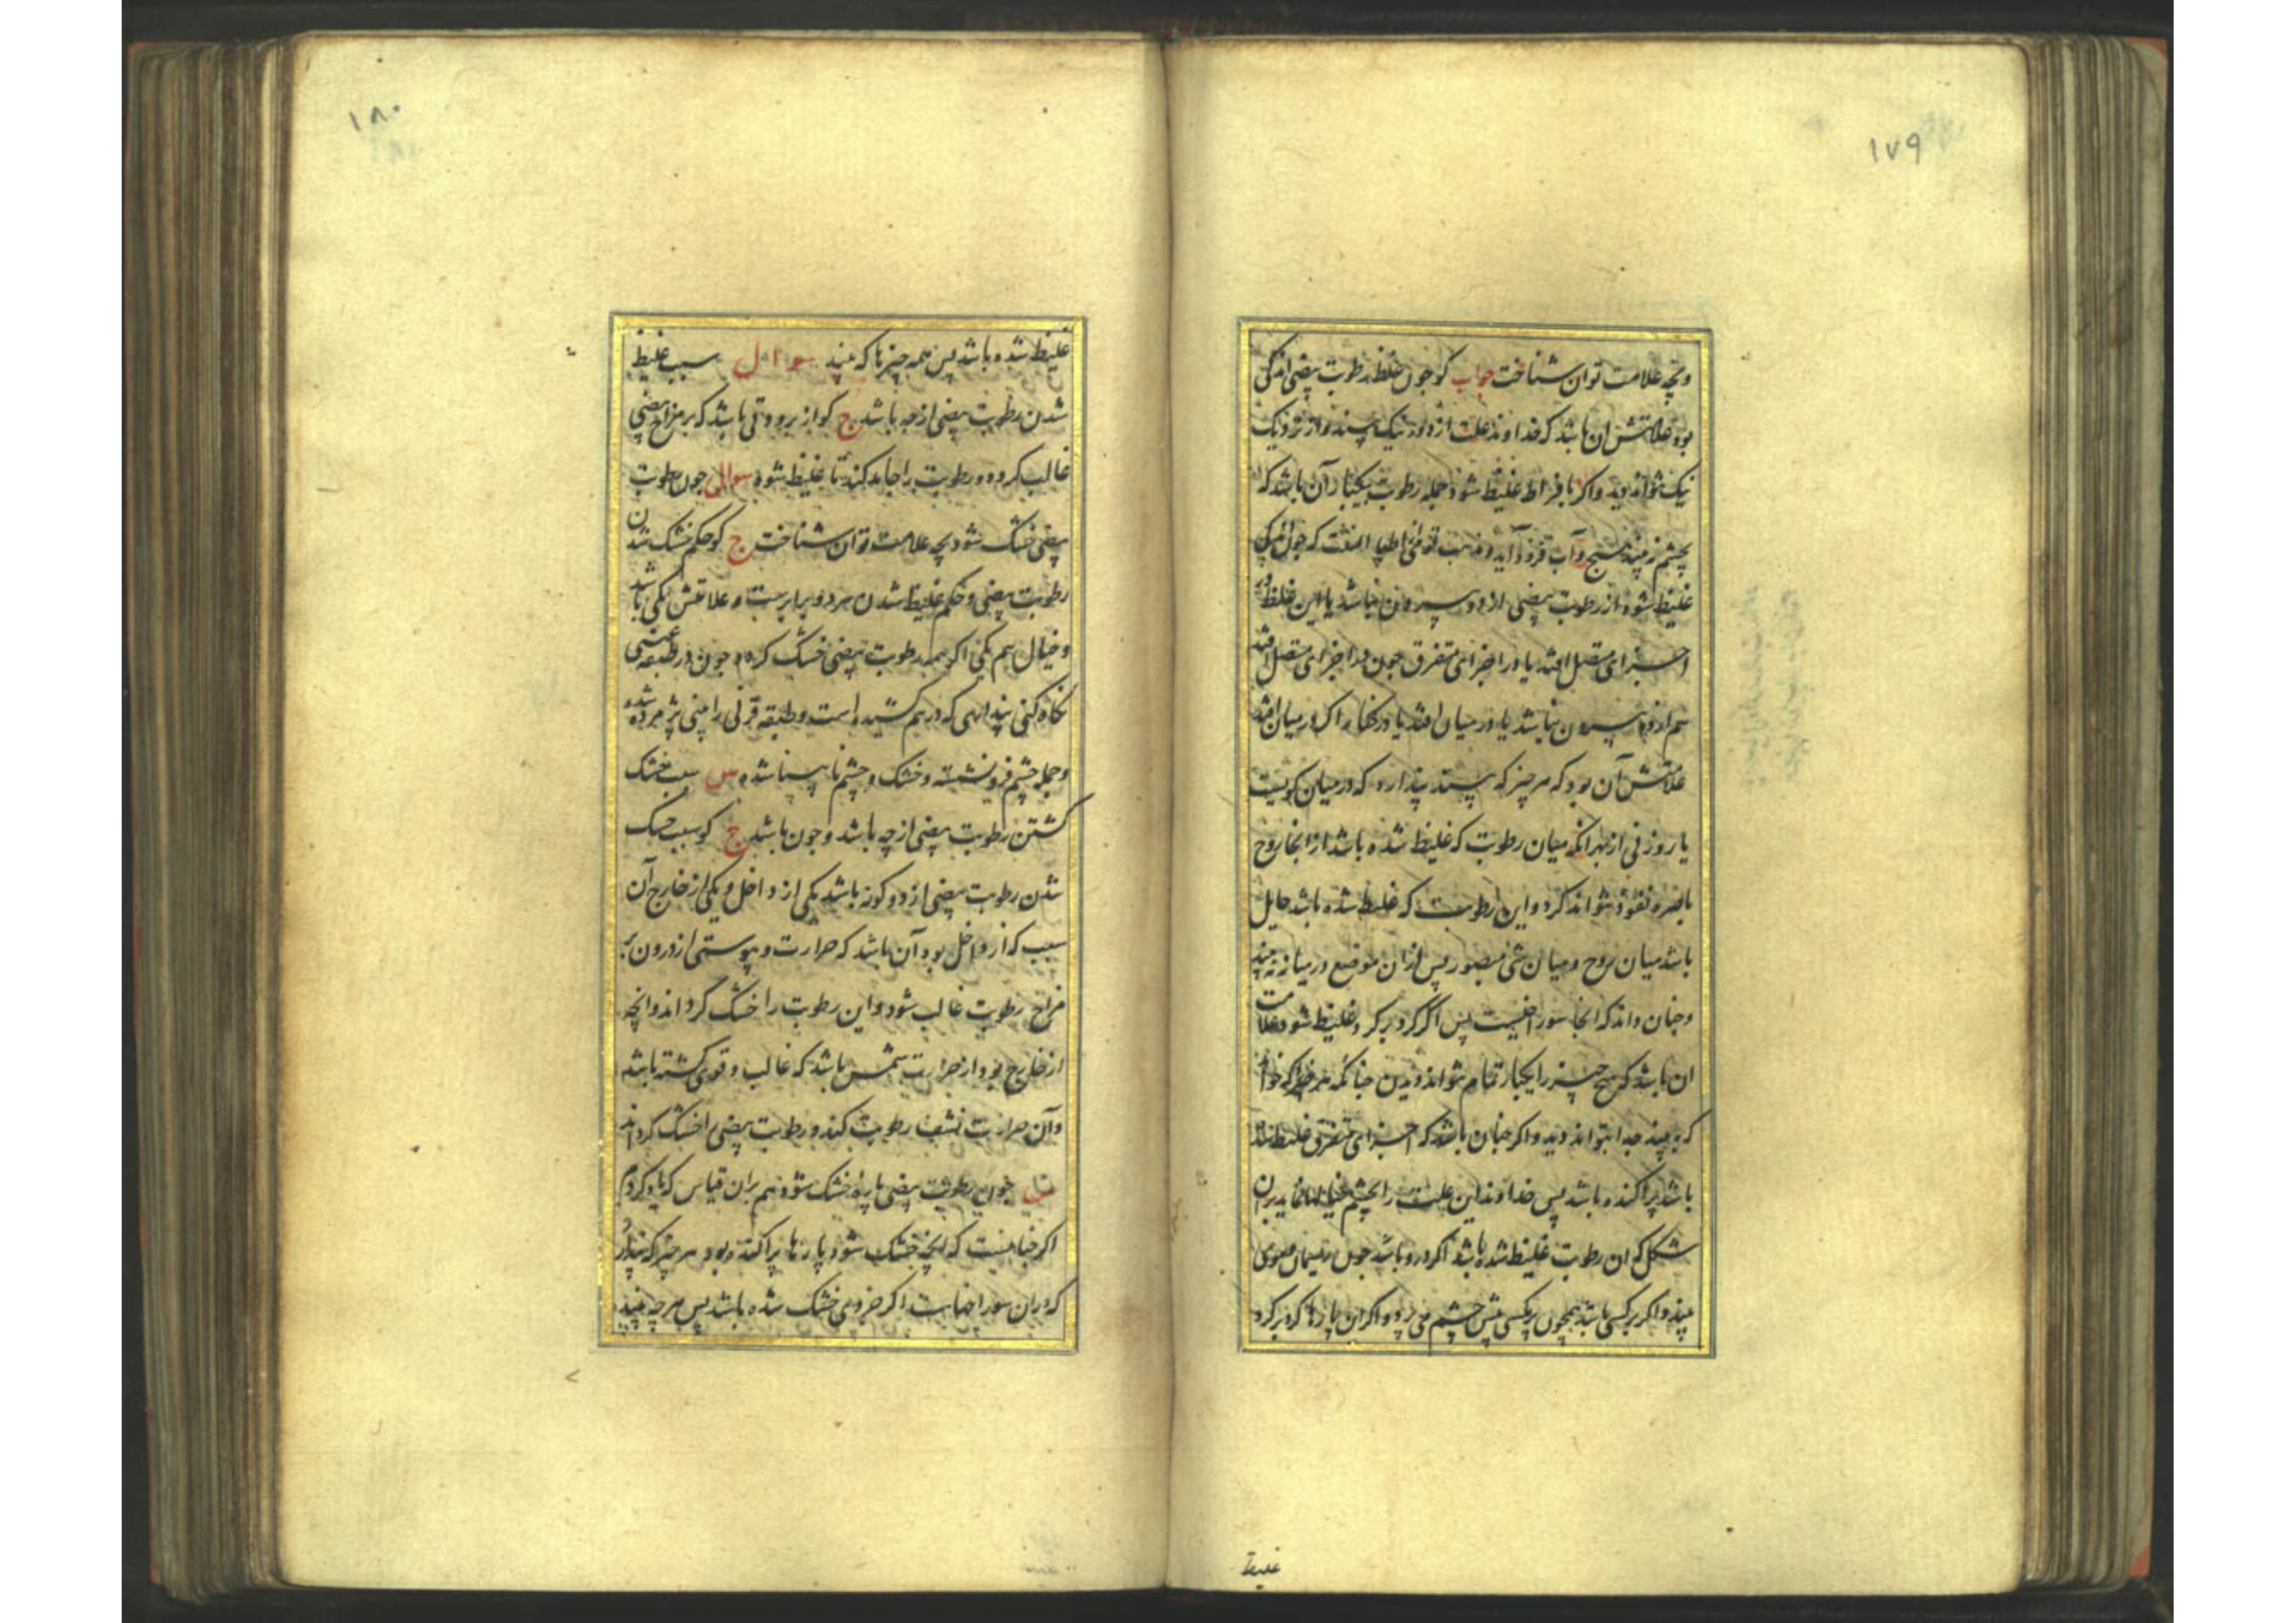 ۱۷۹
وبچه علامت توان شناخت جواب کو جون غلظ رطوبت بیضی اندکی
بود علامتش ان باشد که خداوند علت از دور نیک بیند و از نزدیک
نیک نتواند دید و اکر بافراط غلیظ شود جمله رطوبت بیکبار آن باشد که
بچشم نه بیند هیچ و آب فرود آید و مذهب قومی اطبا انست که جون اندکی
غلیظ شود از رطوبت بیضی از دو بیرون نباشد یا این غلظ در
اجزای متصل افتد یا در اجزای متفرق جون در اجزای متصل افتد
هم از دو بیرون نباشد یا در میان افتد یا در کنار اکر در میان افتد
علامتش آن بود که هر چیز که بیند پندارد که در میان کویست
یا روزنی از بهر انکه میان رطوبت که غلیظ شده باشد از انجا روح
باصره نفوذ نتواند کرد و این رطوبت که غلیظ شده باشد حایل
باشد میان روح و میان شی مبصور پس ازان موضع درمیانه نه بیند
وجنان داند که انجا سوراخیست پس اگر کرد بر کرد غلیظ شود علامت
ان باشد که هیچ چیز را بیکبار تمام نتواند دیدن جنانکه هر چیز که خواهد
که به بیند جدا بتواند دید و اکر جنان باشد که اجزای متفرق غلیظ شده
باشد پراکنده باشد پس خداوند این علت را بچشم خیالها نماید بران
شکل که ان رطوبت غلیظ شده باشد اکر درو باشد جون ریسمان موی
بیند و اکر بر کسی باشد همچون مکسی پیش چشم می پرد و اکر ان پارها کرد بر کرد
غلیظ
۱۸۰
غلیظ شده باشد پس همه چیزها که بیند سوال سبب غلیظ
شدن رطوبت بیضی از جه باشد ج کو از برودتی باشد که بر مزاج بیضی
غالب کردد و رطوبت را جامد کند تا غلیظ شود سوال جون رطوبت
بیضی خشک شود بچه علامت توان شناخت ج کو حکم خشک شدن
رطوبت بیضی و حکم غلیظ شدن هر دو برابرست و علامتش یکی باشد
و خیال هم یکی اکر همه رطوبت بیضی خشک کردد جون در طبقه عنبی
نکاه کنی پندارى که درهم کشیده است و طبقه قرنی را بینی پژمرده شده
و جمله چشم فرو نشسته و خشک و چشم نابینا شده س سبب خشک
کشتن رطوبت بیضی از چه باشد و جون باشد ج کو سبب خشک
شدن رطوبت بیضی از دو کونه باشد یکی از داخل و یکی از خارج آن
سبب که از داخل بود آن باشد که حرارت و یبوستی از درون بر
مزاج رطوبت غالب شود و این رطوبت را خشک کرداند و انچه
از خارج بود از حرارت شمس باشد که غالب و قوی کشته باشد
و آن حرارت نشف رطوبت کند و رطوبت بیضی را خشک کرداند
س جون رطوبت بیضی پاره خشک شود هم بران قیاس که یاد کردم
اکر جنانست که انچه خشک شود پارها پراکنده بود هر چیز که بیند پندارد
که دران سوراخهاست اکر جزوی خشک شده باشد پس هر چه بیند